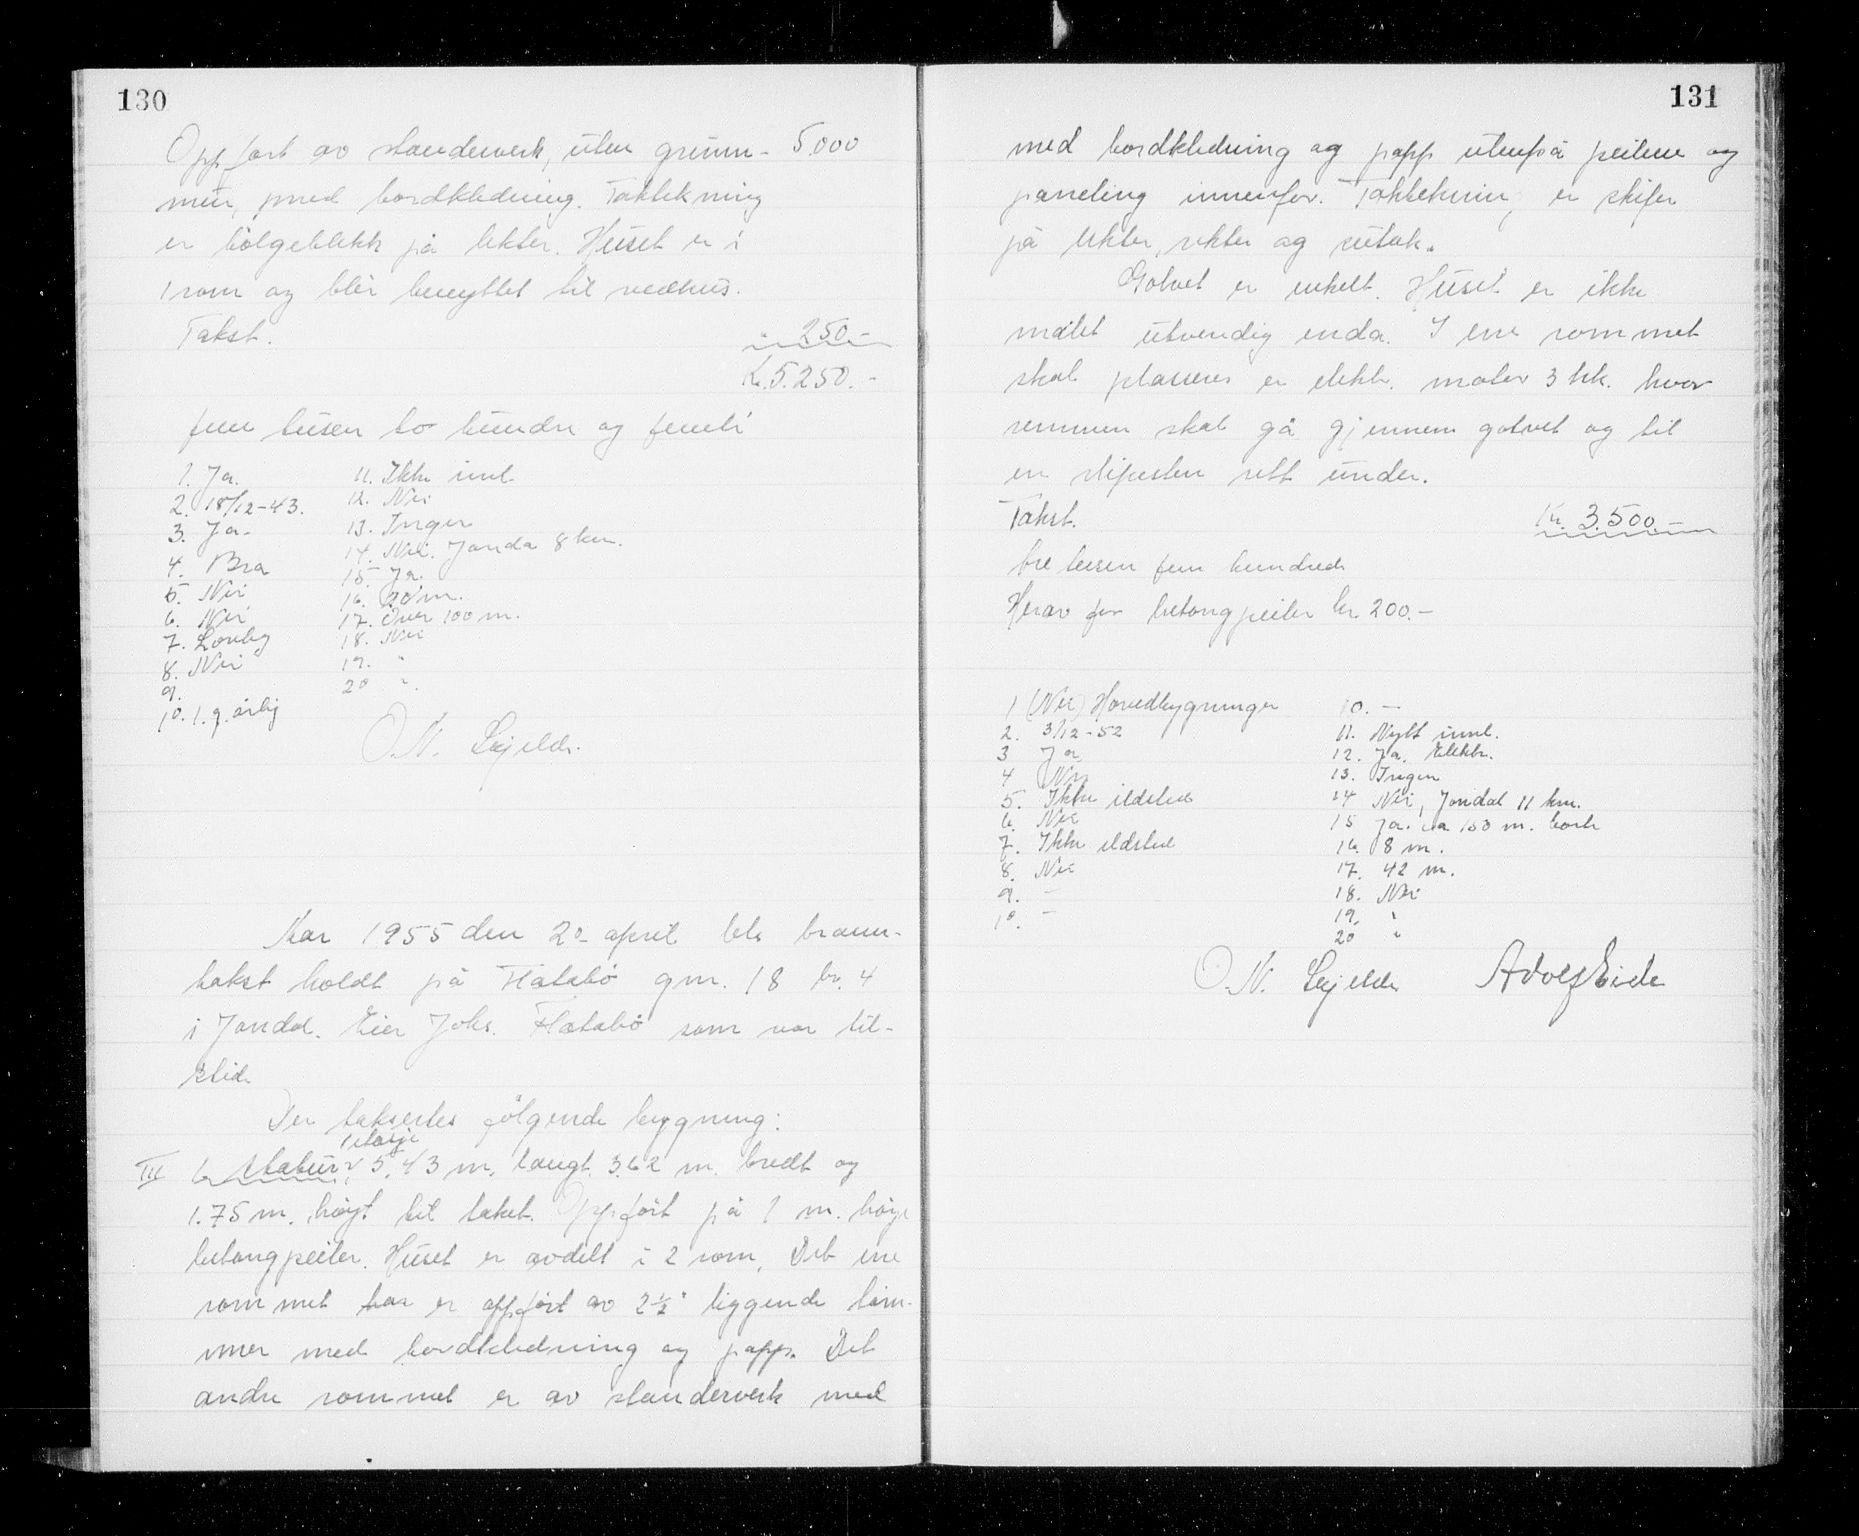 130
Oppført av standerverk, uten grunn- 5.000
mur, med bordkledning. Taktekning
er bølgeblikk på lekter. Huset er i
1 rom og blir benyttet til vedhus.
Takst. " 250.-
Kr. 5.250.-
fem tusen to hundre og femti
1. Ja.
2. 18/12-43.
3. Ja-
4. Bra
5. Nei
6. Nei
7. Lovlig
8. Nei
9.
10. 1. g. årlig
11. Ikke innl
12. Nei
13. Ingen
14. Nei. Jondal 8 km.
15. Ja.
16. 20 m.
17. Over 100 m.
18. Nei
19. "
20 "
O. N. Skjelde.
År 1955 den 20 april ble brann-
takst holdt på Flatabø gnr. 18 br. 4
i Jondal. Eier Johs. Flatabø som var til-
stede
Der takseres følgende bygning:
1 etasje
III 5,43 m. langt. 3.62 m. bredt og
1.75 m. høyt til taket. Oppført på 1 m. høye
betongpeiler. Huset er avdelt i 2 rom, Det ene
rommet har er oppført av 2½" liggende tøm-
mer med bordkledning og papp. Det
andre rommet er av standerverk med
131
med bordkledning og papp utenpå peilene og
paneling innenfor. Taktekning er skifer
på lekter, rekter og sutak.
Golvet er enkelt. Huset er ikke
målet utvendig enda. I ene rommet
skal plasseres en elektr. motor 3 hk. hvor
remmen skal gå gjennem golvet og til
en slipesten rett under.
Takst. Kr. 3.500.-
tre tusen fem hundrede
Herav for betongpeiler kr. 200.-
1 (Nei) Hovedbygninger
2. 3/12-52
3 Ja
4 Nei
5. Ikke ildsted
6. Nei
7. Ikke ildsted
8. Nei
9. -
10. -
10. -
11. Nytt innl.
12. Ja. Elektr.
13. Ingen
14 Nei, Jondal 11 km.
15 Ja. ca 150 m. borte
16. 8 m.
17. 42 m.
18. Nei
19. "
20 "
O. N. Skjelde Adolf Eide